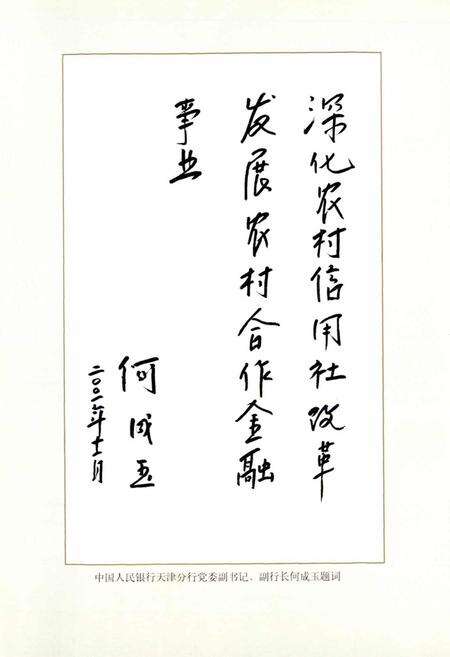 深化农村信用社改革
发展农村合作金融
事业
何成玉
二〇〇一年十一月
中国人民银行天津分行党委副书记、副行长何成玉题词